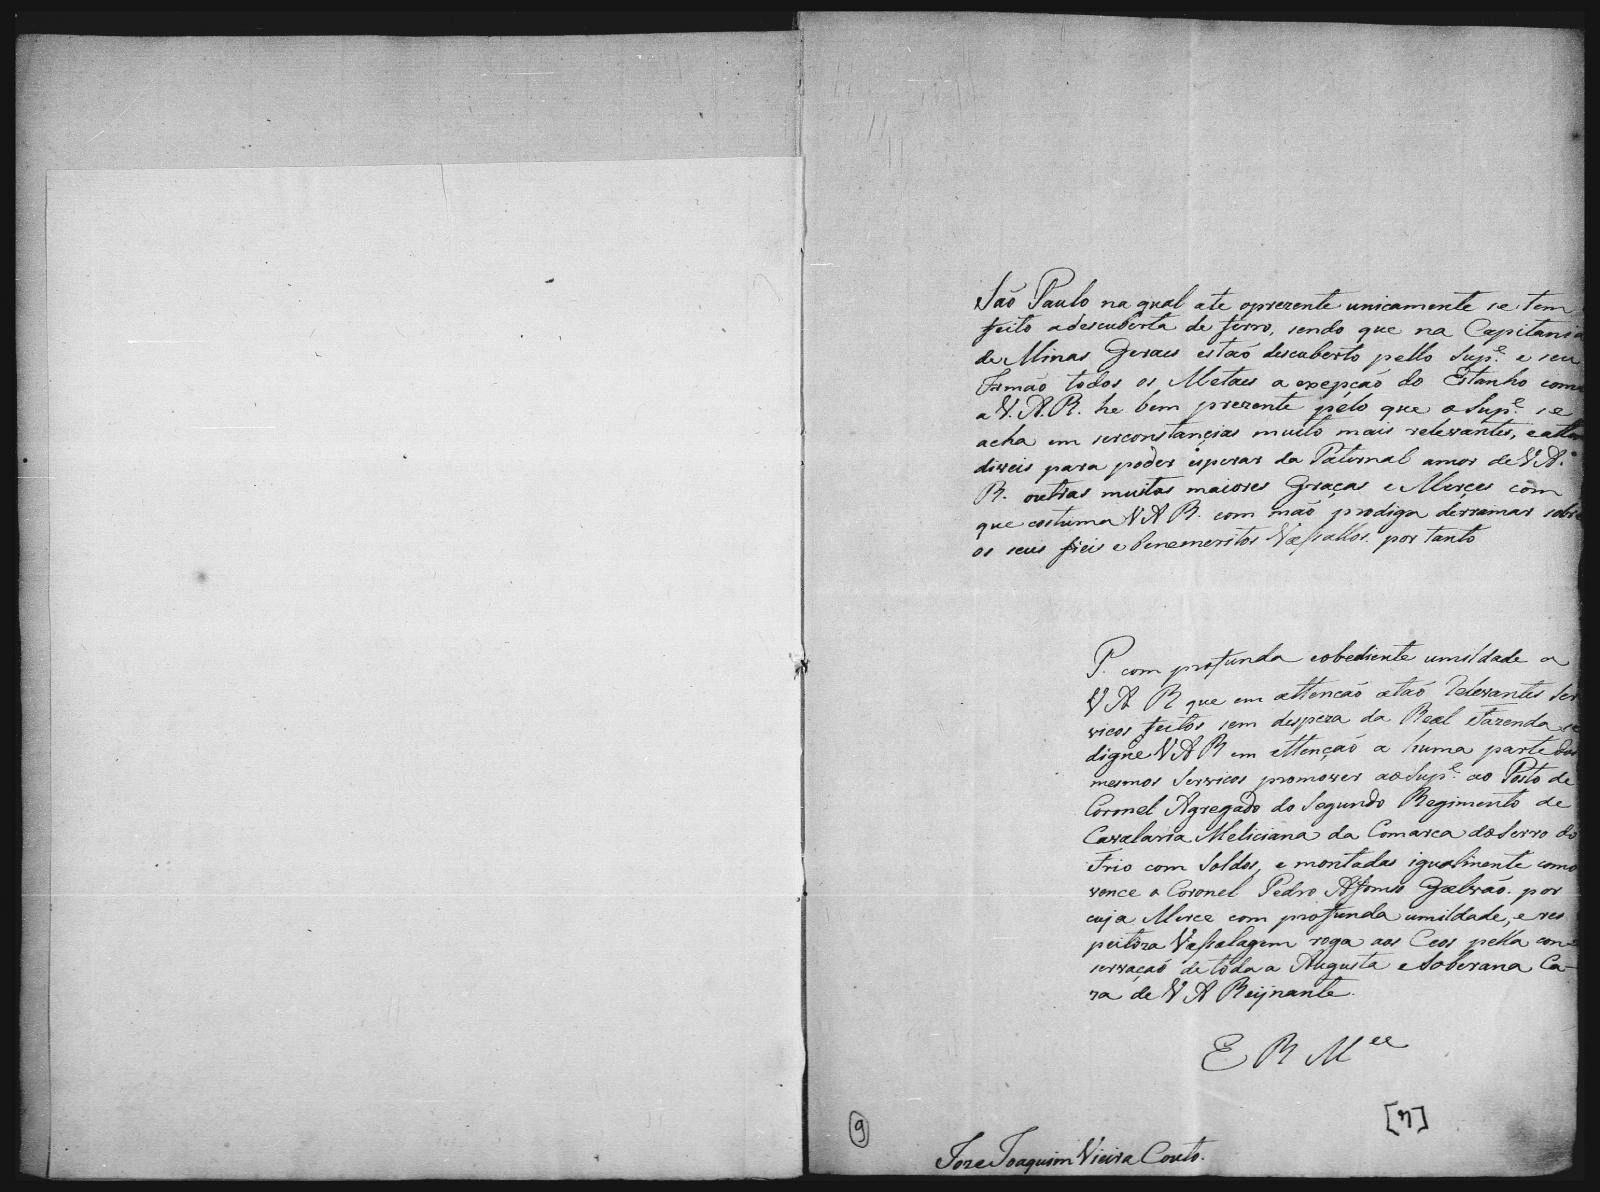 São Paulo na qual ate oprezente unicamente se tem
feito adescuberta de ferro, sendo que na Capitania
de Minas Geraes estaõ descuberto pello Sup.e e seu
Irmaõ todos os Metaes a exepçaõ do Estanho como
a V. A. R. he bem prezente pélo que o Sup.e se
acha em serconstançias muito mais relevantes, e atten
diveis para poder esperar da Paternal amor de V. A.
R. outras muitas maiores Graças e Merçes com
que costuma V A R. com maõ prodiga derramar sobre
os seus fieis e benemeritos Vassallos. por tanto
P. com profunda eobediente umildade a
V A R que em attencaõ ataõ Relevantes Ser
vicos feitos sem despeza da Real Fazenda se
digne V A R em attençaõ a huma parte dos
mesmos Servicos promover ao Sup.e ao Posto de
Coronel Agregado do Segundo Regimento de
Cavalaria Meliciana da Comarca do Serro do
Frio com Soldos, e montadas igualmente como
vence o Coronel Pedro Affonso Galvaõ. por
cuja Merce com profunda umildade, e res
peitoza Vassalagem roga aos Ceos pella con-
servaçaõ de toda a Augusta e Soberana Ca-
za de V A Reijnante.
E R M ce
[7]
9
Joze Joaquim Vieira Couto.